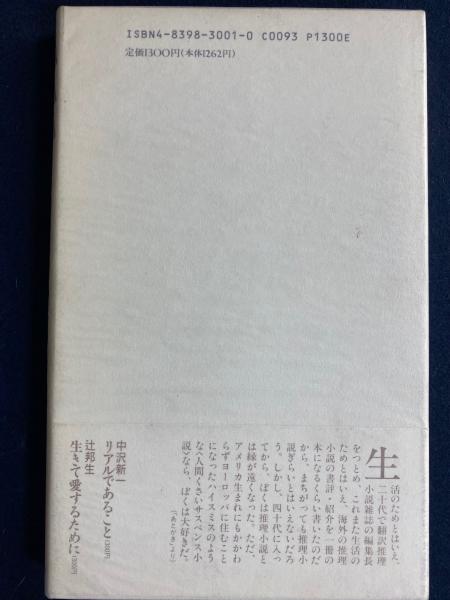 ISBN4-8398-3001-0 C0093 P1300E
定価1300円(本体1262円)
生活のためとはいえ、
二十代で翻訳推理
小説雑誌の編集長
をつとめ、これまた生活の
ためとはいえ、海外の推理
小説の書評・紹介を一冊の
本になるくらい書いたのだ
から、まちがっても推理小
説ぎらいとはいえないだろ
う。しかし、四十代に入っ
てから、ぼくは推理小説と
は縁が遠くなった。ただ、
アメリカ生まれにもかかわ
らずヨーロッパに住むこと
になったハイスミスのよう
な〈人間くさいサスペンス小
説〉なら、ぼくは大好きだ。
(「あとがき」より)
中沢新一
リアルであること 1300円
辻邦生
生きて愛するために 1300円